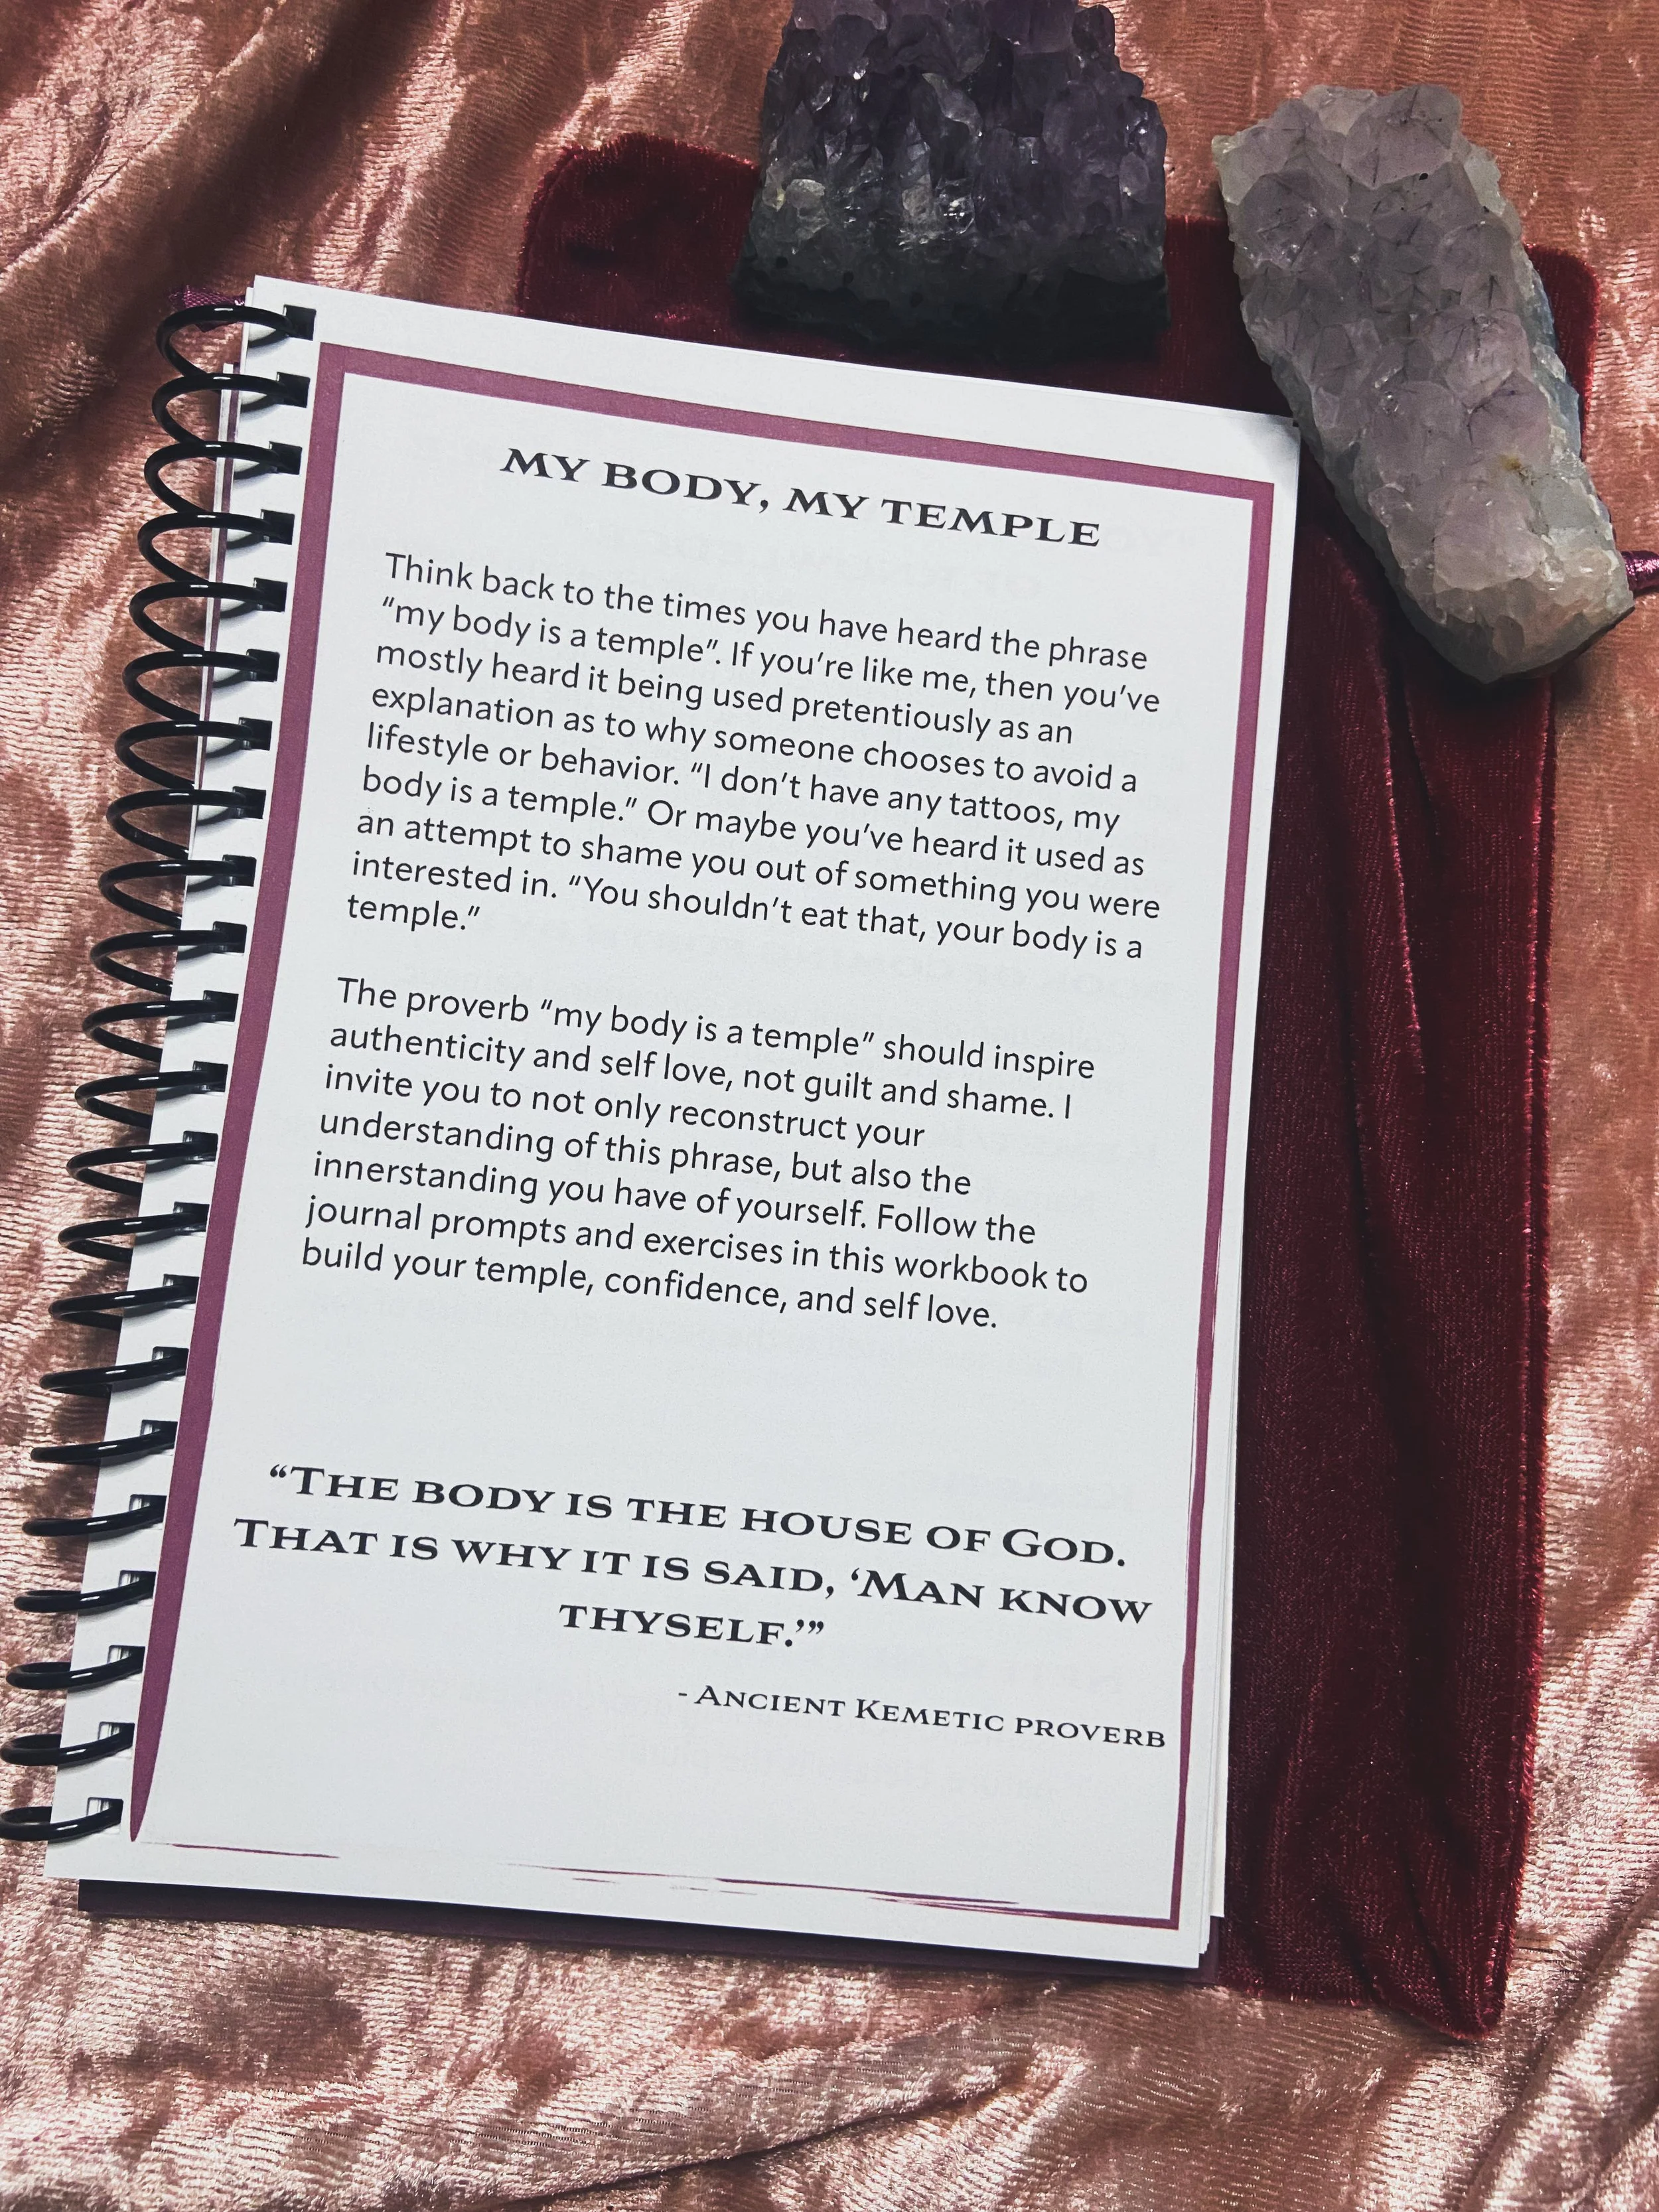 MY BODY, MY TEMPLE
Think back to the times you have heard the phrase
“my body is a temple”. If you’re like me, then you’ve
mostly heard it being used pretentiously as an
explanation as to why someone chooses to avoid a
lifestyle or behavior. “I don’t have any tattoos, my
body is a temple.” Or maybe you’ve heard it used as
an attempt to shame you out of something you were
interested in. “You shouldn’t eat that, your body is a
temple.”
The proverb “my body is a temple” should inspire
authenticity and self love, not guilt and shame. I
invite you to not only reconstruct your
understanding of this phrase, but also the
innerstanding you have of yourself. Follow the
journal prompts and exercises in this workbook to
build your temple, confidence, and self love.
“The body is the house of God.
That is why it is said, ‘Man know
thyself.’”
- Ancient Kemetic proverb